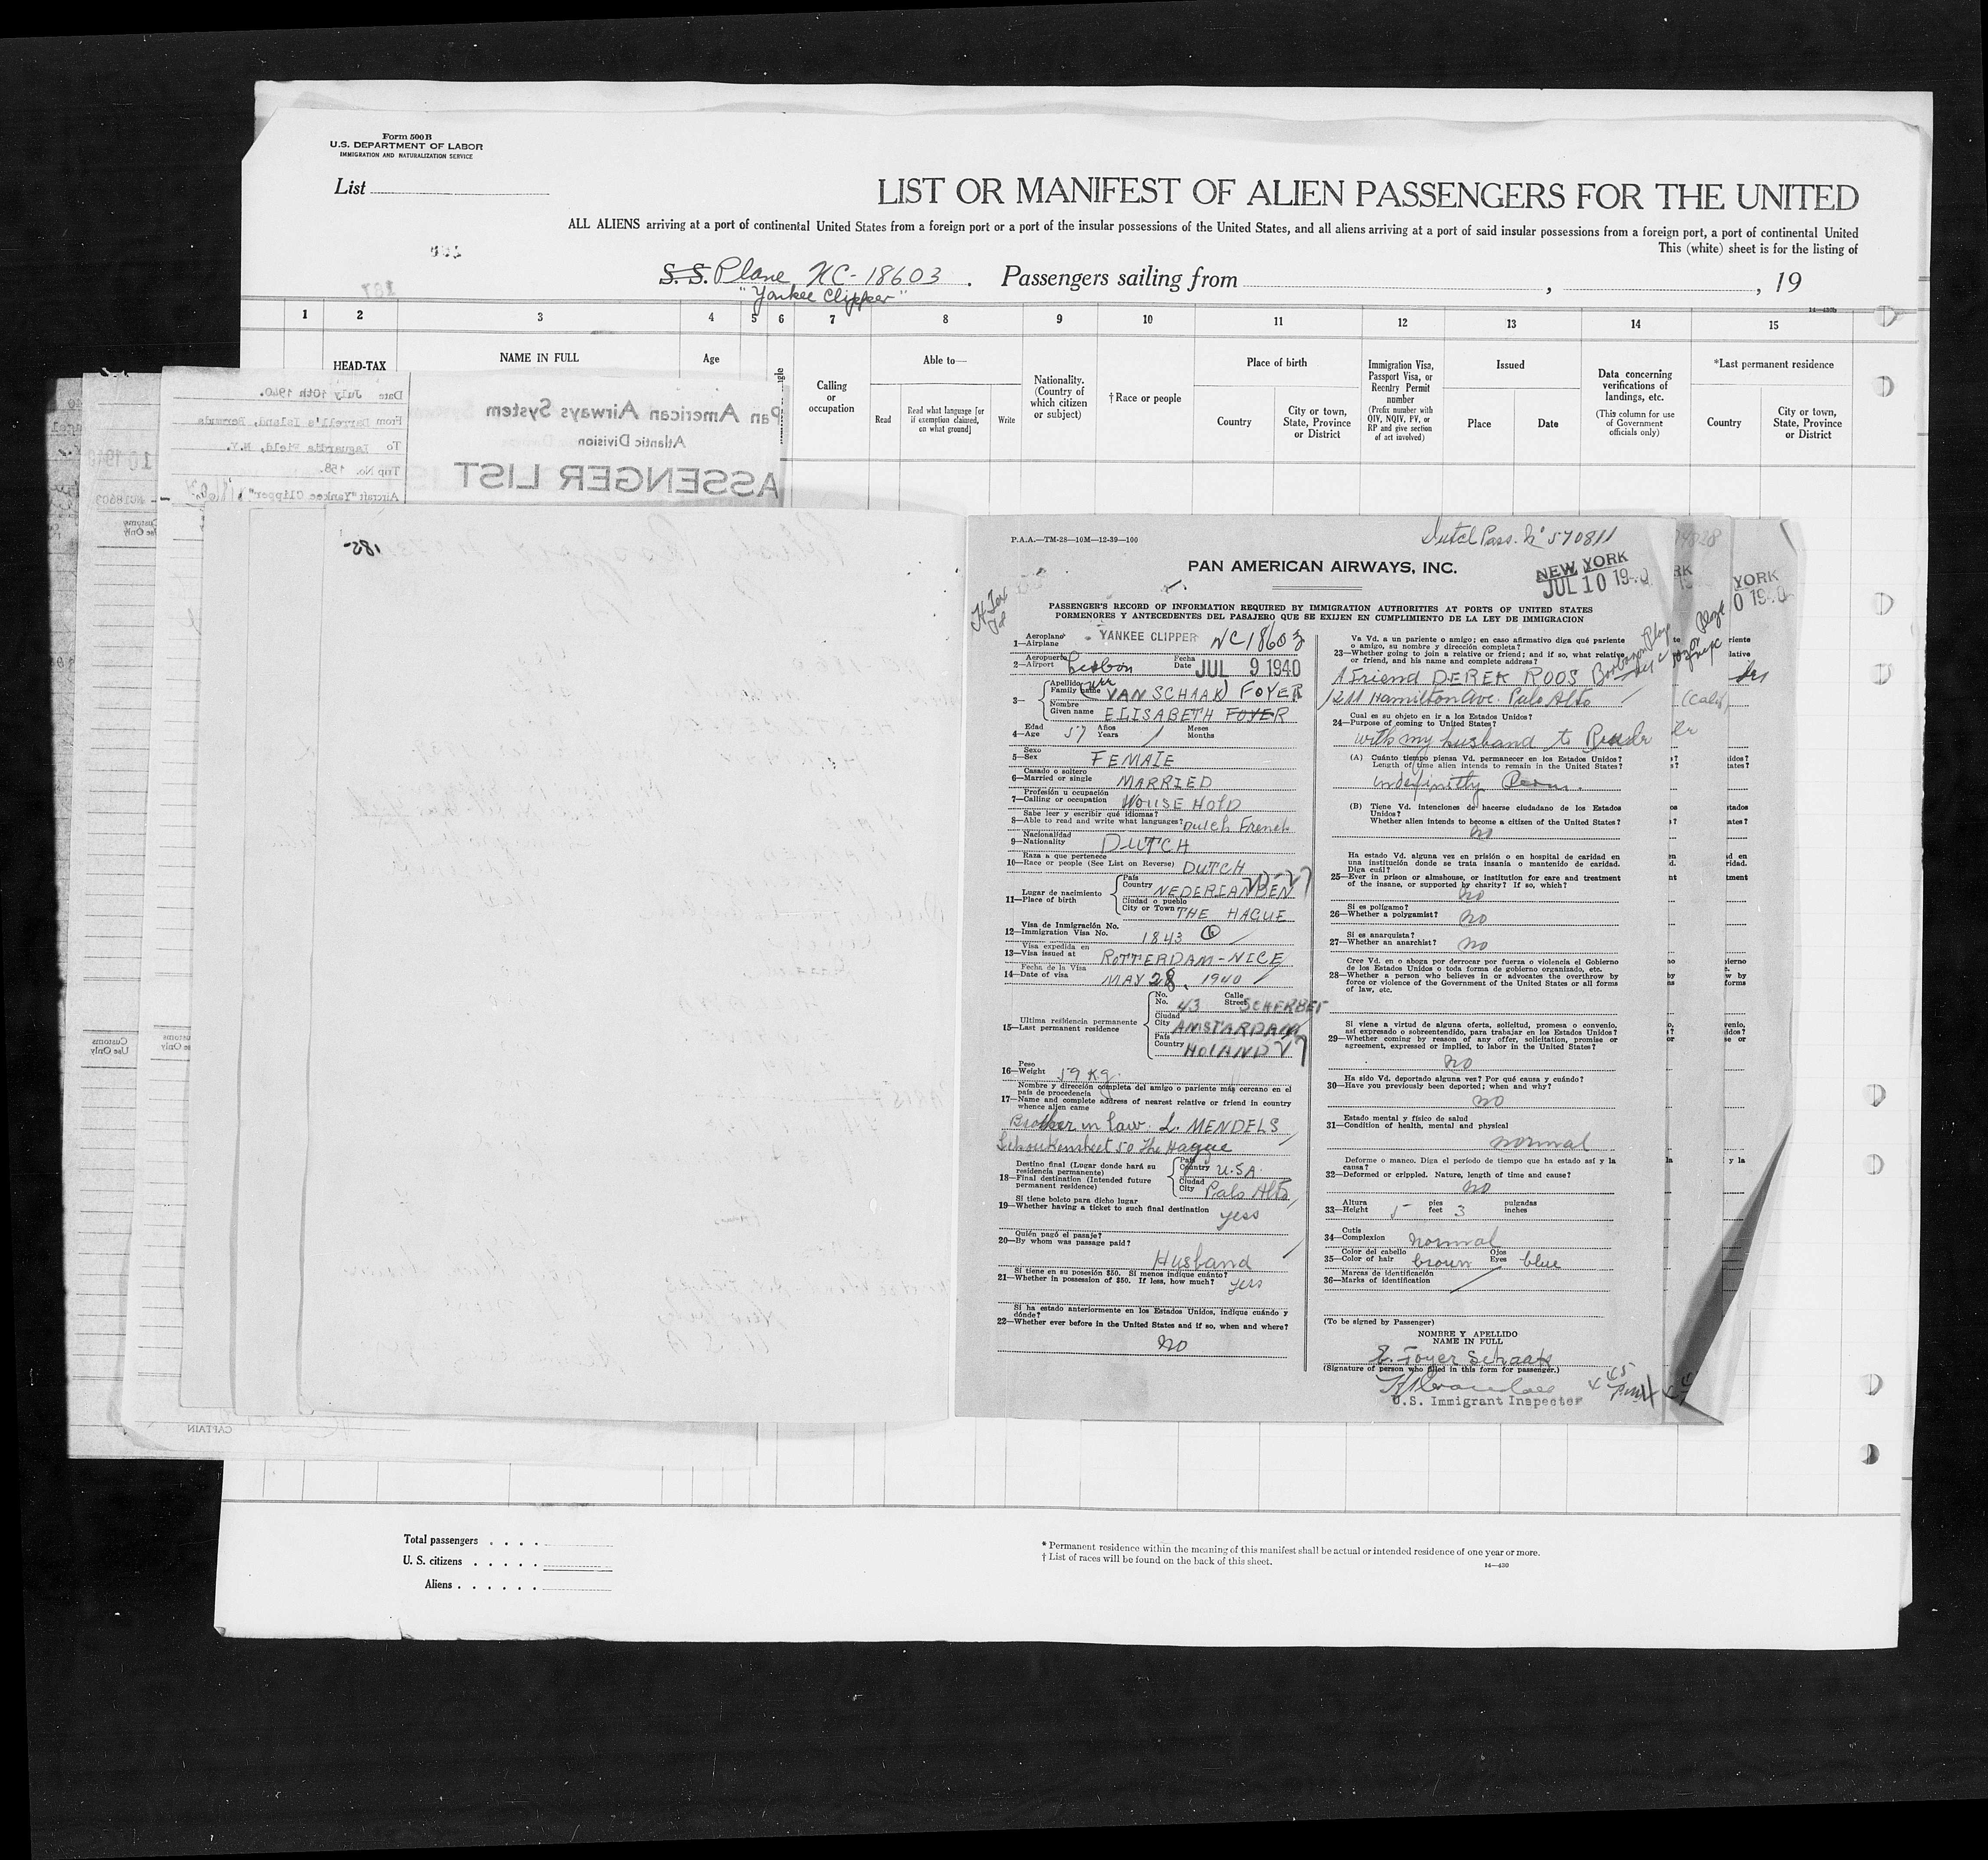 Form 500B
U.S. DEPARTMENT OF LABOR
IMMIGRATION AND NATURALIZATION SERVICE
List
LIST OR MANIFEST OF ALIEN PASSENGERS FOR THE UNITED
ALL ALIENS arriving at a port of continental United States from a foreign port or a port of the insular possessions of the United States, and all aliens arriving at a port of said insular possessions from a foreign port, a port of continental United
This (white) sheet is for the listing of
S. S. Plane NC-18603 . Passengers sailing from , , 19
"Yankee Clipper"
14—430b
1 2 3 4 5 6 7 8 9 10 11 12 13 14 15
HEAD-TAX
NAME IN FULL
Age
Calling or occupation
Able to—
Read
Read what language [or if exemption claimed, on what ground]
Write
Nationality. (Country of which citizen or subject)
†Race or people
Place of birth
Country
City or town, State, Province or District
Immigration Visa, Passport Visa, or Reentry Permit number
(Prefix number with QIV, NQIV, PV, or RP and give section of act involved)
Issued
Place
Date
Data concerning verifications of landings, etc.
(This column for use of Government officials only)
*Last permanent residence
Country
City or town, State, Province or District
Date July 10th 1940.
From Darrell's Island, Bermuda
To Laguardia Field, N.Y.
Trip No. 158.
Aircraft "Yankee Clipper"
Pan American Airways System
Atlantic Division
ASSENGER LIST
NC18603
Customs Use Only
Customs Use Only
CAPTAIN
P.A.A.—TM-28—10M—12-39—100
Dutch Pass. No 570811
PAN AMERICAN AIRWAYS, INC.
NEW YORK
JUL 10 1940
YORK
0 1940
H. Tax
PASSENGER'S RECORD OF INFORMATION REQUIRED BY IMMIGRATION AUTHORITIES AT PORTS OF UNITED STATES
PORMENORES Y ANTECEDENTES DEL PASAJERO QUE SE EXIJEN EN CUMPLIMIENTO DE LA LEY DE IMMIGRACION
Aeroplano
1—Airplane YANKEE CLIPPER NC18603
Aeropuerto
2—Airport Lisbon Fecha Date JUL 9 1940
3— Apellido Family name VAN SCHAAK) FOYER
Nombre
Given name ELISABETH FOYER
Edad
4—Age 57 Años Years 1 Meses Months
Sexo
5—Sex FEMALE
Casado o soltero
6—Married or single MARRIED
Profesión u ocupación
7—Calling or occupation HOUSE HOLD
Sabe leer y escribir qué idiomas?
8—Able to read and write what languages? Dutch French
Nacionalidad
9—Nationality DUTCH
Raza a que pertenece
10—Race or people (See List on Reverse) DUTCH
Lugar de nacimiento
11—Place of birth
País
Country NEDERLANDEN
Ciudad o pueblo
City or Town THE HAGUE
Visa de Inmigración No.
12—Immigration Visa No. 1843
Visa expedida en
13—Visa issued at ROTTERDAM-NICE
Fecha de la Visa
14—Date of visa MAY 28, 1940
Ultima residencia permanente
15—Last permanent residence
No.
No. 43 Calle Street SCHERBEF
Ciudad
City AMSTARDAM
País
Country HOLAND
Peso
16—Weight 59 Kg.
Nombre y dirección completa del amigo o pariente más cercano en el país de procedencia
17—Name and complete address of nearest relative or friend in country whence alien came
Brother in law. L. MENDELS
50 The Hague
Destino final (Lugar donde hará su residencia permanente)
18—Final destination (Intended future permanent residence)
País
Country U.S.A.
Ciudad
City Palo Alto
Si tiene boleto para dicho lugar
19—Whether having a ticket to such final destination yess
Quién pagó el pasaje?
20—By whom was passage paid?
Husband
Si tiene en su posesión $50. Si menos indique cuánto?
21—Whether in possession of $50. If less, how much? yess
Si ha estado anteriormente en los Estados Unidos, indique cuándo y dónde?
22—Whether ever before in the United States and if so, when and where?
no
Va Vd. a un pariente o amigo; en caso afirmativo diga qué pariente o amigo, su nombre y dirección completa?
23—Whether going to join a relative or friend; and if so, what relative or friend, and his name and complete address?
A Friend DEREK ROOS
1211 Hamilton Ave. Palo Alto (Calif)
Cual es su objeto en ir a los Estados Unidos?
24—Purpose of coming to United States?
with my husband to
(A) Cuánto tiempo piensa Vd. permanecer en los Estados Unidos?
Length of time alien intends to remain in the United States?
indefinitly Perm.
(B) Tiene Vd. intenciones de hacerse ciudadano de los Estados Unidos?
Whether alien intends to become a citizen of the United States?
no
Ha estado Vd. alguna vez en prisión o en hospital de caridad en una institución donde se trata insania o mantenido de caridad. Diga cuál?
25—Ever in prison or almshouse, or institution for care and treatment of the insane, or supported by charity? If so, which?
no
Si es polígamo?
26—Whether a polygamist? no
Si es anarquista?
27—Whether an anarchist? no
Cree Vd. en o aboga por derrocar por fuerza o violencia el Gobierno de los Estados Unidos o toda forma de gobierno organizado, etc.
28—Whether a person who believes in or advocates the overthrow by force or violence of the Government of the United States or all forms of law, etc.
Si viene a virtud de alguna oferta, solicitud, promesa o convenio, así expresado o sobreentendido, para trabajar en los Estados Unidos?
29—Whether coming by reason of any offer, solicitation, promise or agreement, expressed or implied, to labor in the United States?
no
Ha sido Vd. deportado alguna vez? Por qué causa y cuándo?
30—Have you previously been deported; when and why?
no
Estado mental y físico de salud
31—Condition of health, mental and physical
normal
Deforme o manco. Diga el período de tiempo que ha estado así y la causa?
32—Deformed or crippled. Nature, length of time and cause?
no
Altura
33—Height 5 pies feet 3 pulgadas inches
Cutis
34—Complexion normal
Color del cabello
35—Color of hair brown Ojos Eyes blue
Marcas de identificación
36—Marks of identification
(To be signed by Passenger)
NOMBRE Y APELLIDO
NAME IN FULL
E. Foyer Schaak
(Signature of person who filled in this form for passenger.)
U.S. Immigrant Inspector
Total passengers
U. S. citizens
Aliens
* Permanent residence within the meaning of this manifest shall be actual or intended residence of one year or more.
† List of races will be found on the back of this sheet.
14—430